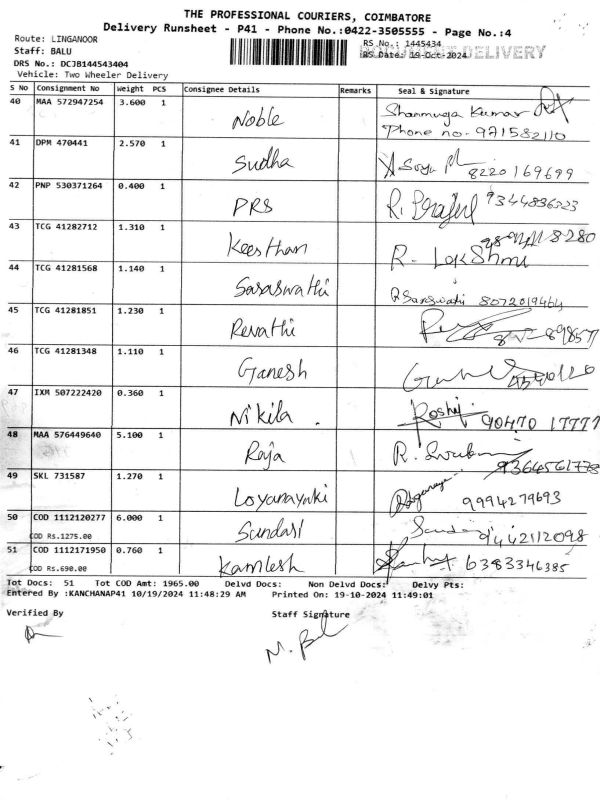 THE PROFESSIONAL COURIERS, COIMBATORE
Delivery Runsheet - P41 - Phone No.:0422-3505555 - Page No.:4
Route: LINGANOOR
RS No.: 1445434
Staff: BALU
RS Date: 19-Oct-2024
DELIVERY
DRS No.: DCJB144543404
Vehicle: Two Wheeler Delivery
S No Consignment No Weight PCS Consignee Details Remarks Seal & Signature
40 MAA 572947254 3.600 1 Noble Shanmuga Kumar
Phone no. 971582110
41 DPM 470441 2.570 1 Sudha Surya 8220169699
42 PNP 530371264 0.400 1 PRS R.
43 TCG 41282712 1.310 1 Keesthan R. Lakshmi
44 TCG 41281568 1.140 1 Sasaswathi 8072019464
45 TCG 41281851 1.230 1 Revathi
46 TCG 41281348 1.110 1 Ganesh
47 IXM 507222420 0.360 1 Nikila . Roshij 90470 17777
48 MAA 576449640 5.100 1 Raja R. 9364561778
49 SKL 731587 1.270 1 Loyanayaki 9994279693
50 COD 1112120277 6.000 1 Sundari 9442112098
COD Rs.1275.00
51 COD 1112171950 0.760 1 Kamlesh 6383346385
COD Rs.690.00
Tot Docs: 51 Tot COD Amt: 1965.00 Delvd Docs: Non Delvd Docs: Delvy Pts:
Entered By :KANCHANAP41 10/19/2024 11:48:29 AM Printed On: 19-10-2024 11:49:01
Verified By Staff Signature